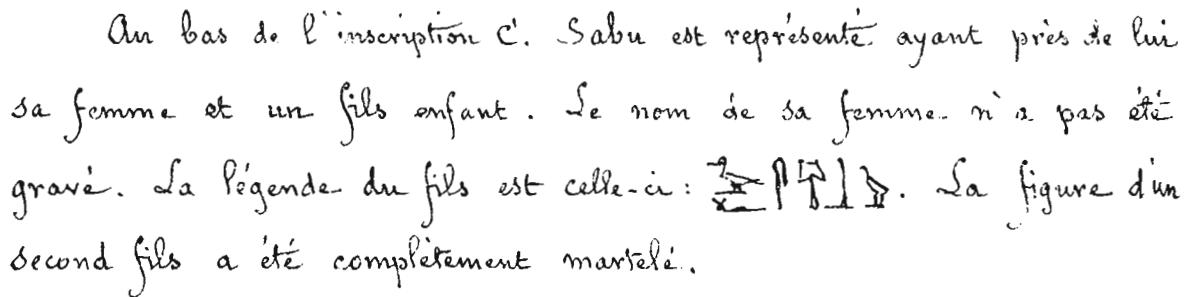 Au bas de l'inscription C. Sabu est représenté ayant près de lui
sa femme et un fils enfant. Le nom de sa femme n'a pas été
gravé. La légende du fils est celle-ci : . La figure d'un
second fils a été complètement martelé.